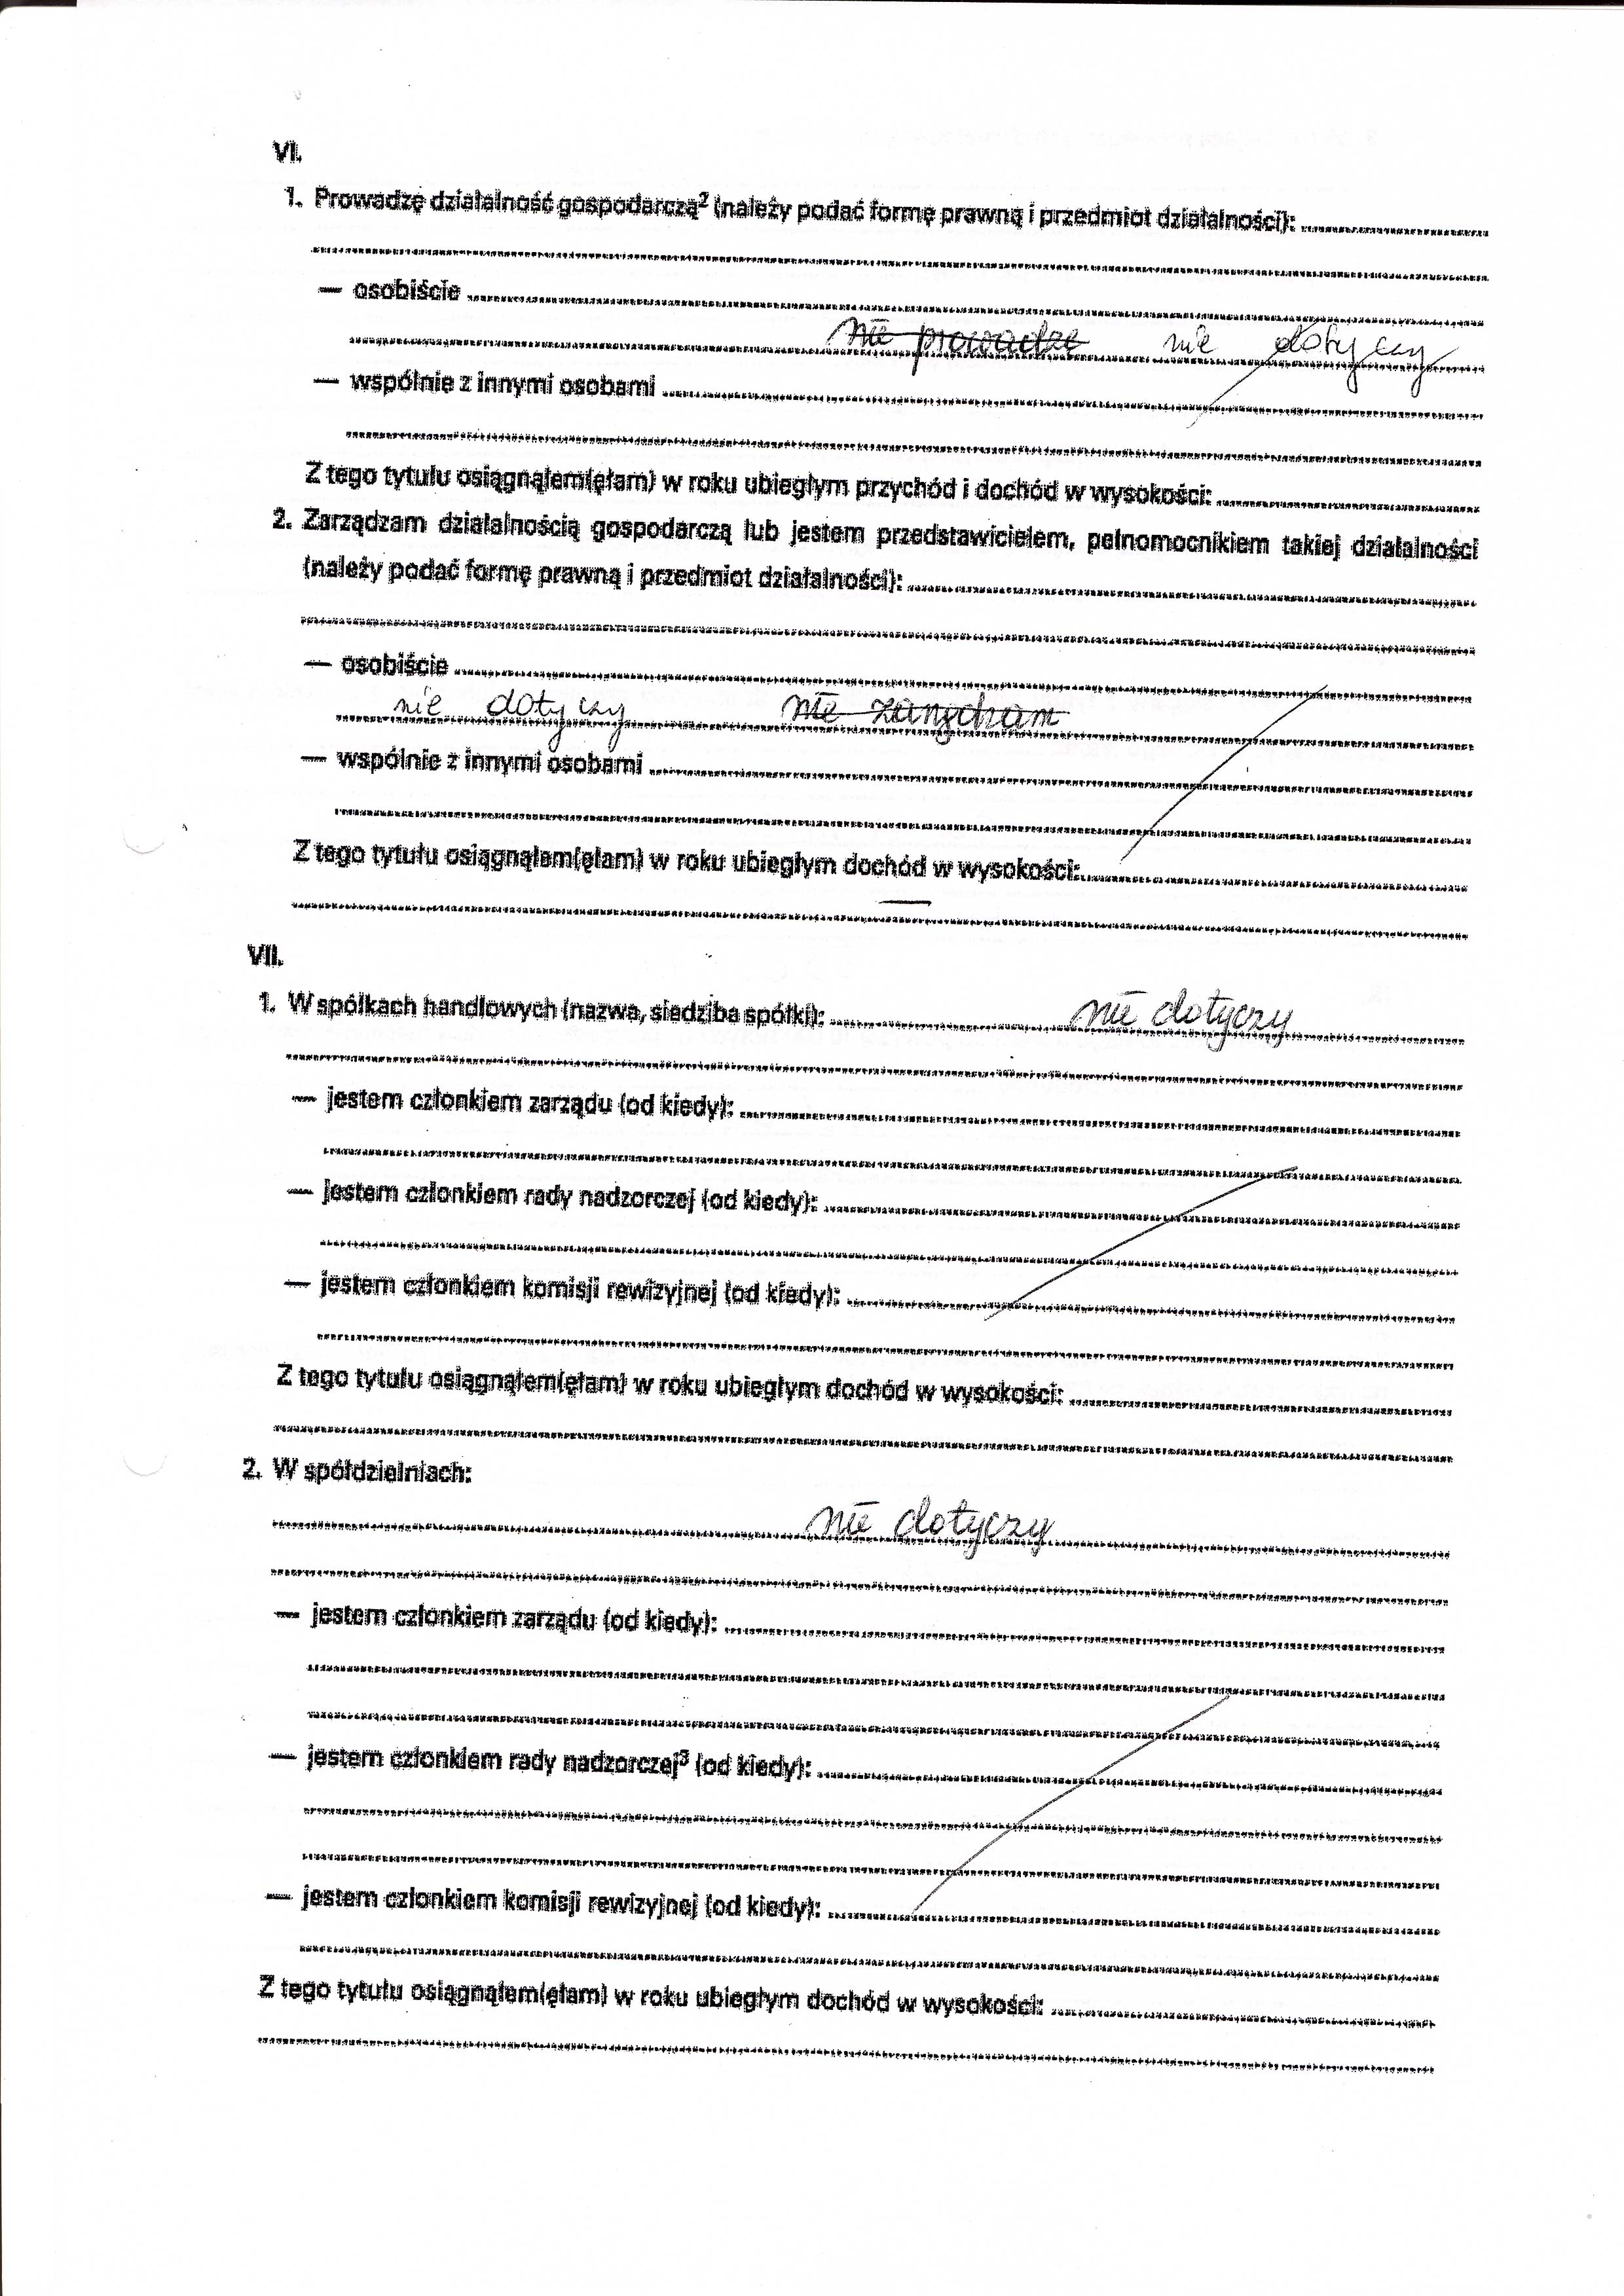 VI.
1. Prowadzę działalność gospodarczą² (należy podać formę prawną i przedmiot działalności): ........
........
— osobiście ........
nie prowadzę nie dotyczy
— wspólnie z innymi osobami ........
........
Z tego tytułu osiągnąłem(ęłam) w roku ubiegłym przychód i dochód w wysokości: ........
2. Zarządzam działalnością gospodarczą lub jestem przedstawicielem, pełnomocnikiem takiej działalności
(należy podać formę prawną i przedmiot działalności): ........
........
— osobiście ........
nie dotyczy nie zarządzam
— wspólnie z innymi osobami ........
........
Z tego tytułu osiągnąłem(ęłam) w roku ubiegłym dochód w wysokości: ........
........
VII.
1. W spółkach handlowych (nazwa, siedziba spółki): ........ nie dotyczy
........
— jestem członkiem zarządu (od kiedy): ........
........
— jestem członkiem rady nadzorczej (od kiedy): ........
........
— jestem członkiem komisji rewizyjnej (od kiedy): ........
........
Z tego tytułu osiągnąłem(ęłam) w roku ubiegłym dochód w wysokości: ........
........
2. W spółdzielniach:
nie dotyczy
........
— jestem członkiem zarządu (od kiedy): ........
........
........
— jestem członkiem rady nadzorczej³ (od kiedy): ........
........
........
— jestem członkiem komisji rewizyjnej (od kiedy): ........
........
Z tego tytułu osiągnąłem(ęłam) w roku ubiegłym dochód w wysokości: ........
........